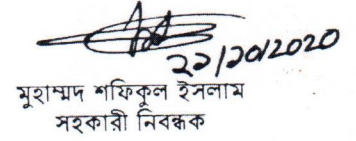 ২২/১০/২০২০
মুহাম্মদ শফিকুল ইসলাম
সহকারী নিবন্ধক